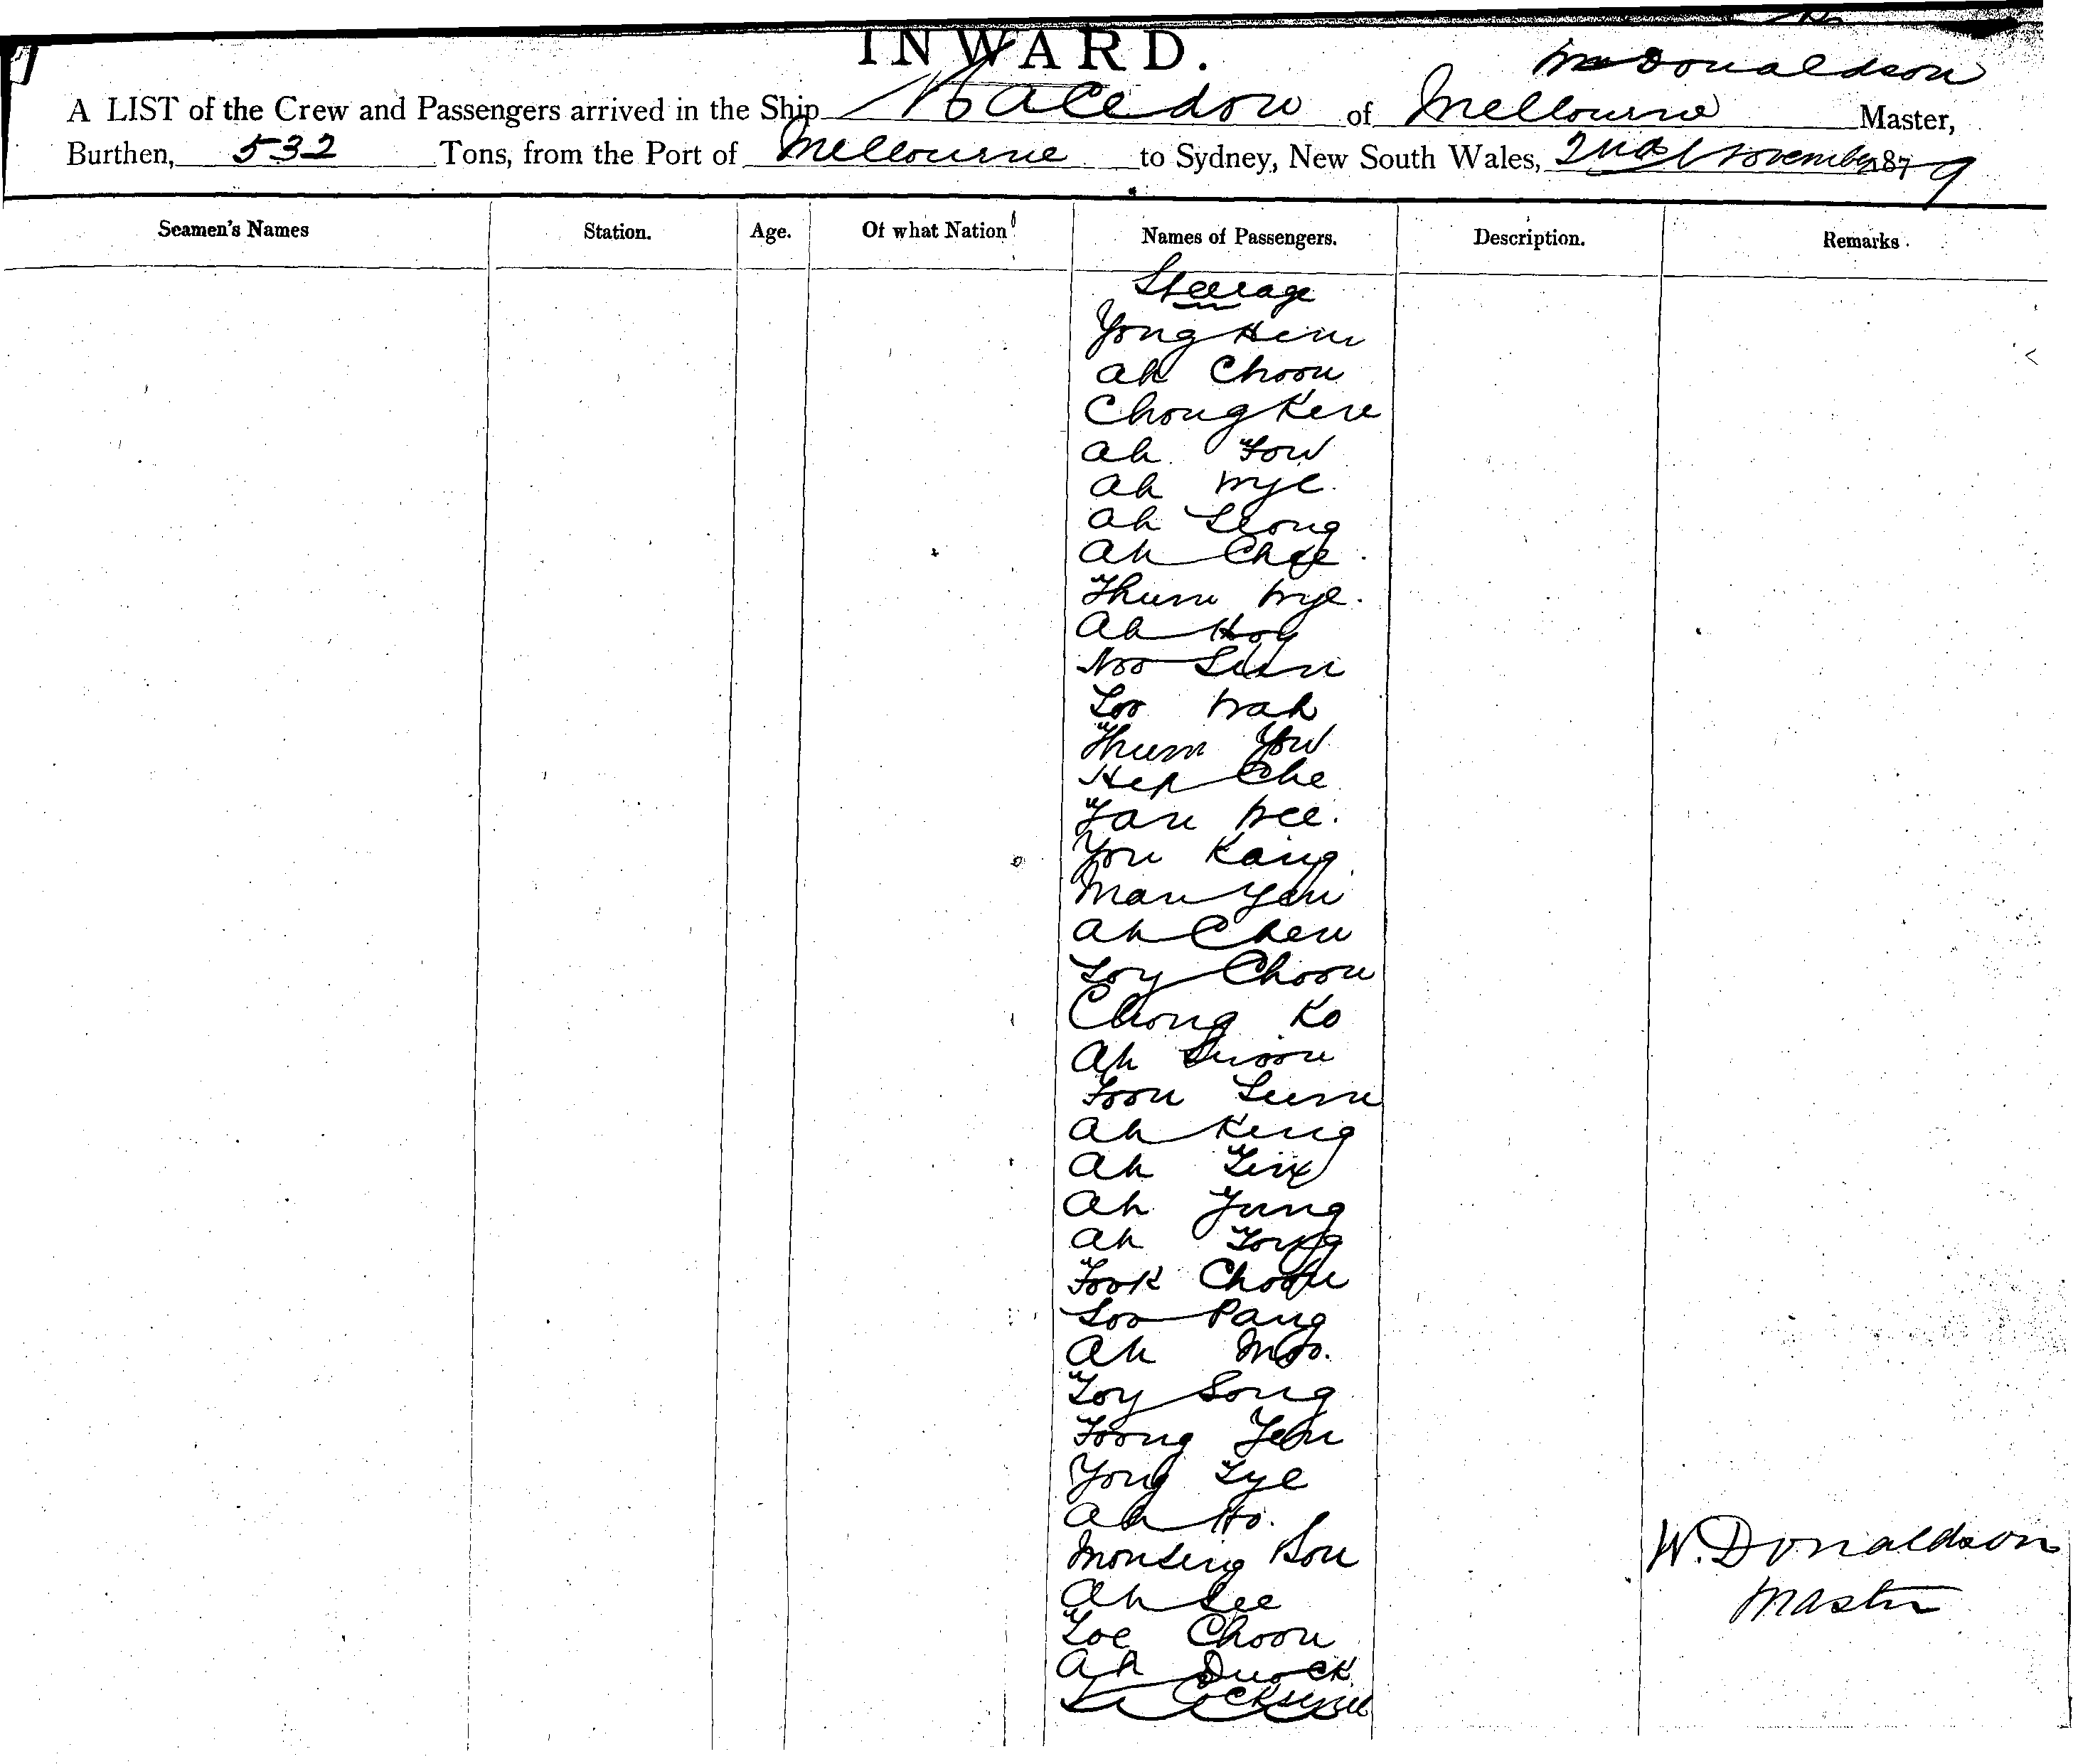 INWARD.
Wm Donaldson
A LIST of the Crew and Passengers arrived in the Ship Macedon of Melbourne Master,
Burthen, 532 Tons, from the Port of Melbourne to Sydney, New South Wales, 2nd November 1879
Seamen's Names Station. Age. Of what Nation Names of Passengers. Description. Remarks.
Steerage
Yong Hem
Ah Choon
Chong Kew
Ah Fow
Ah Wye
Ah Leong
Ah Choe
Thum Wye.
Ah Hoy
Noo Sun
Loo Wah
Thum You
Hep Che
Fan Wee.
You Kang
Man Yen
Ah Chew
Loy Choon
Chong Ko
Ah
Foon Lum
Ah King
Ah
Ah Yung
Ah
Fook Choon
Loo Pang
Ah Moo.
Toy Song
Foong Yen
Yong Tye
Ah Ho.
Son
Ah See
Choon
Ah
W. Donaldson
Master